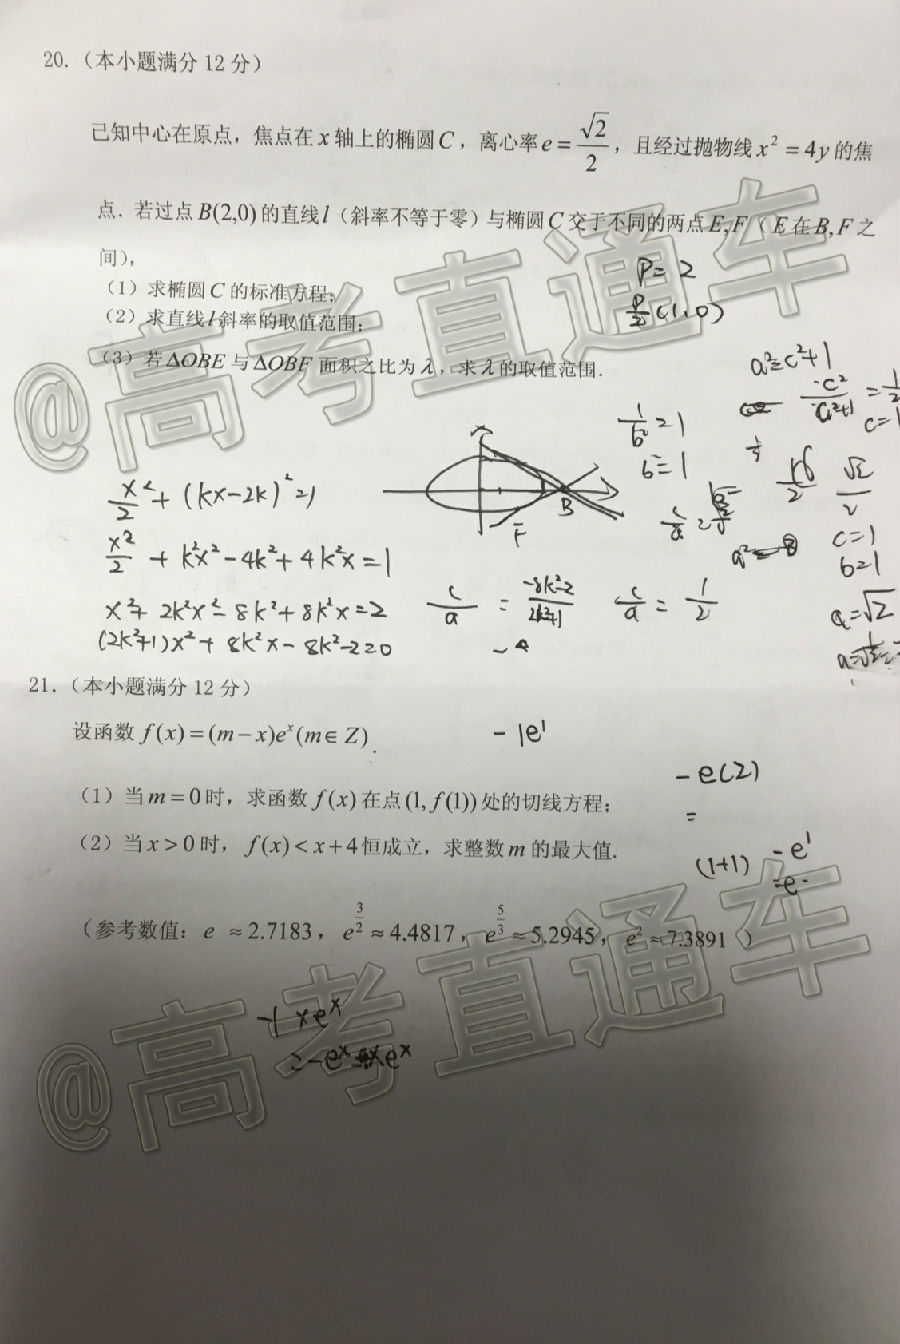 20.（本小题满分 12 分）
已知中心在原点，焦点在 x 轴上的椭圆 C，离心率 e = √2/2，且经过抛物线 x² = 4y 的焦
点．若过点 B(2,0) 的直线 l（斜率不等于零）与椭圆 C 交于不同的两点 E,F（E 在 B,F 之
间），
P = 2
（1）求椭圆 C 的标准方程；
P/2 (1,0)
（2）求直线 l 斜率的取值范围；
（3）若 ΔOBE 与 ΔOBF 面积之比为 λ，求 λ 的取值范围．
@高考直通车
a²=c²+1
c²/c²+1 = 1/2
c=1
1/b² = 1
b=1
x²/2 + (kx-2k)²=1
B
F
√2/2
c=1
x²/2 + k²x²-4k²+4k²x=1
b=1
x²+2k²x²-8k²+8k²x=2
c/a = -8k²-2/2k²+1
c/a = 1/2
a=√2
(2k²+1)x²+8k²x-8k²-2=0
21.（本小题满分 12 分）
设函数 f(x) = (m-x)eˣ (m∈Z)．
-1e¹
-e(2)
（1）当 m = 0 时，求函数 f(x) 在点 (1, f(1)) 处的切线方程；
=
（2）当 x > 0 时，f(x) < x + 4 恒成立，求整数 m 的最大值．
(1+1)
-e¹
（参考数值：e ≈ 2.7183，e^(3/2) ≈ 4.4817，e^(5/3) ≈ 5.2945，e² ≈ 7.3891）
@高考直通车
-1 xeˣ